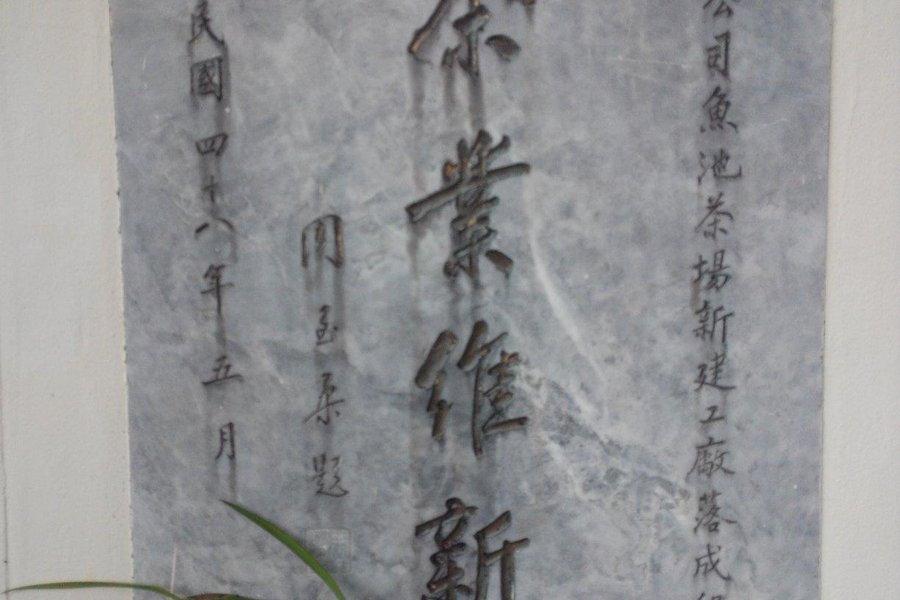 公司魚池茶場新建工廠落成紀
茶業維新
周玉柔題
民國四十八年五月